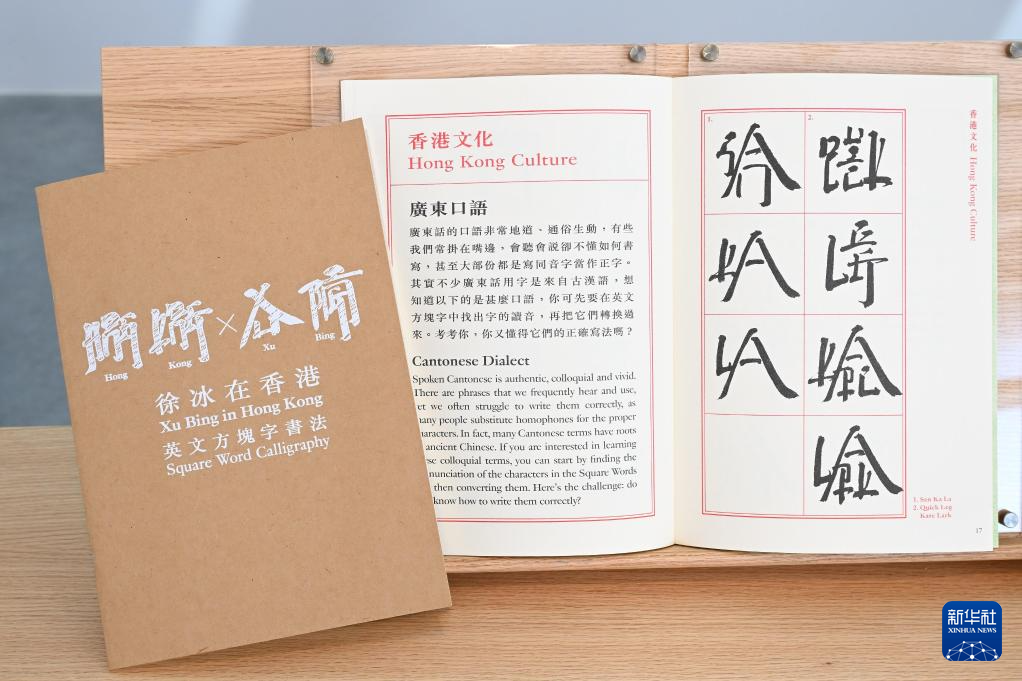 ×
Hong
Kong
Xu
Bing
徐冰在香港
Xu Bing in Hong Kong
英文方塊字書法
Square Word Calligraphy
香港文化
Hong Kong Culture
廣東口語
廣東話的口語非常地道、通俗生動，有些
我們常掛在嘴邊，會聽會説卻不懂如何書
寫，甚至大部份都是寫同音字當作正字。
其實不少廣東話用字是來自古漢語，想
知道以下的是甚麼口語，你可先要在英文
方塊字中找出字的讀音，再把它們轉換過
來。考考你，你又懂得它們的正確寫法嗎？
Cantonese Dialect
Spoken Cantonese is authentic, colloquial and vivid.
There are phrases that we frequently hear and use,
et we often struggle to write them correctly, as
many people substitute homophones for the proper
aracters. In fact, many Cantonese terms have roots
ancient Chinese. If you are interested in learning
se colloquial terms, you can start by finding the
nunciation of the characters in the Square Words
then converting them. Here's the challenge: do
know how to write them correctly?
1.
2.
香港文化 Hong Kong Culture
1. San Ka La
2. Quick Leg
Kare Lark
17
新华社
XINHUA NEWS